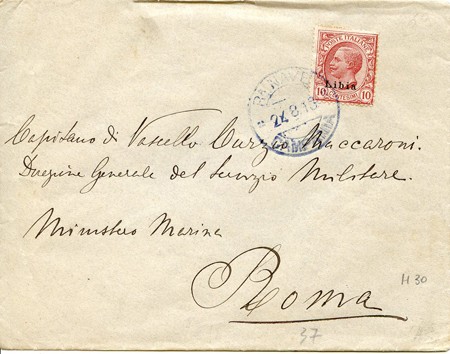 POSTE ITALIANE
Libia
10 CENTESIMI 10
24.8.18
Capitano di Vascello Curzio Maccaroni.
Direzione Generale del Servizio Militare.
Ministero Marina
Roma
H 30
37